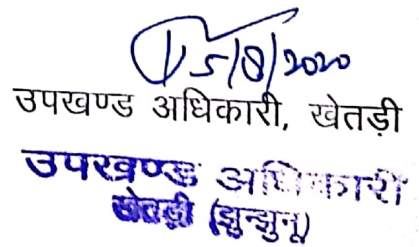 5/8/2020
उपखण्ड अधिकारी, खेतड़ी
उपखण्ड अधिकारी
खेतड़ी (झुन्झुनू)